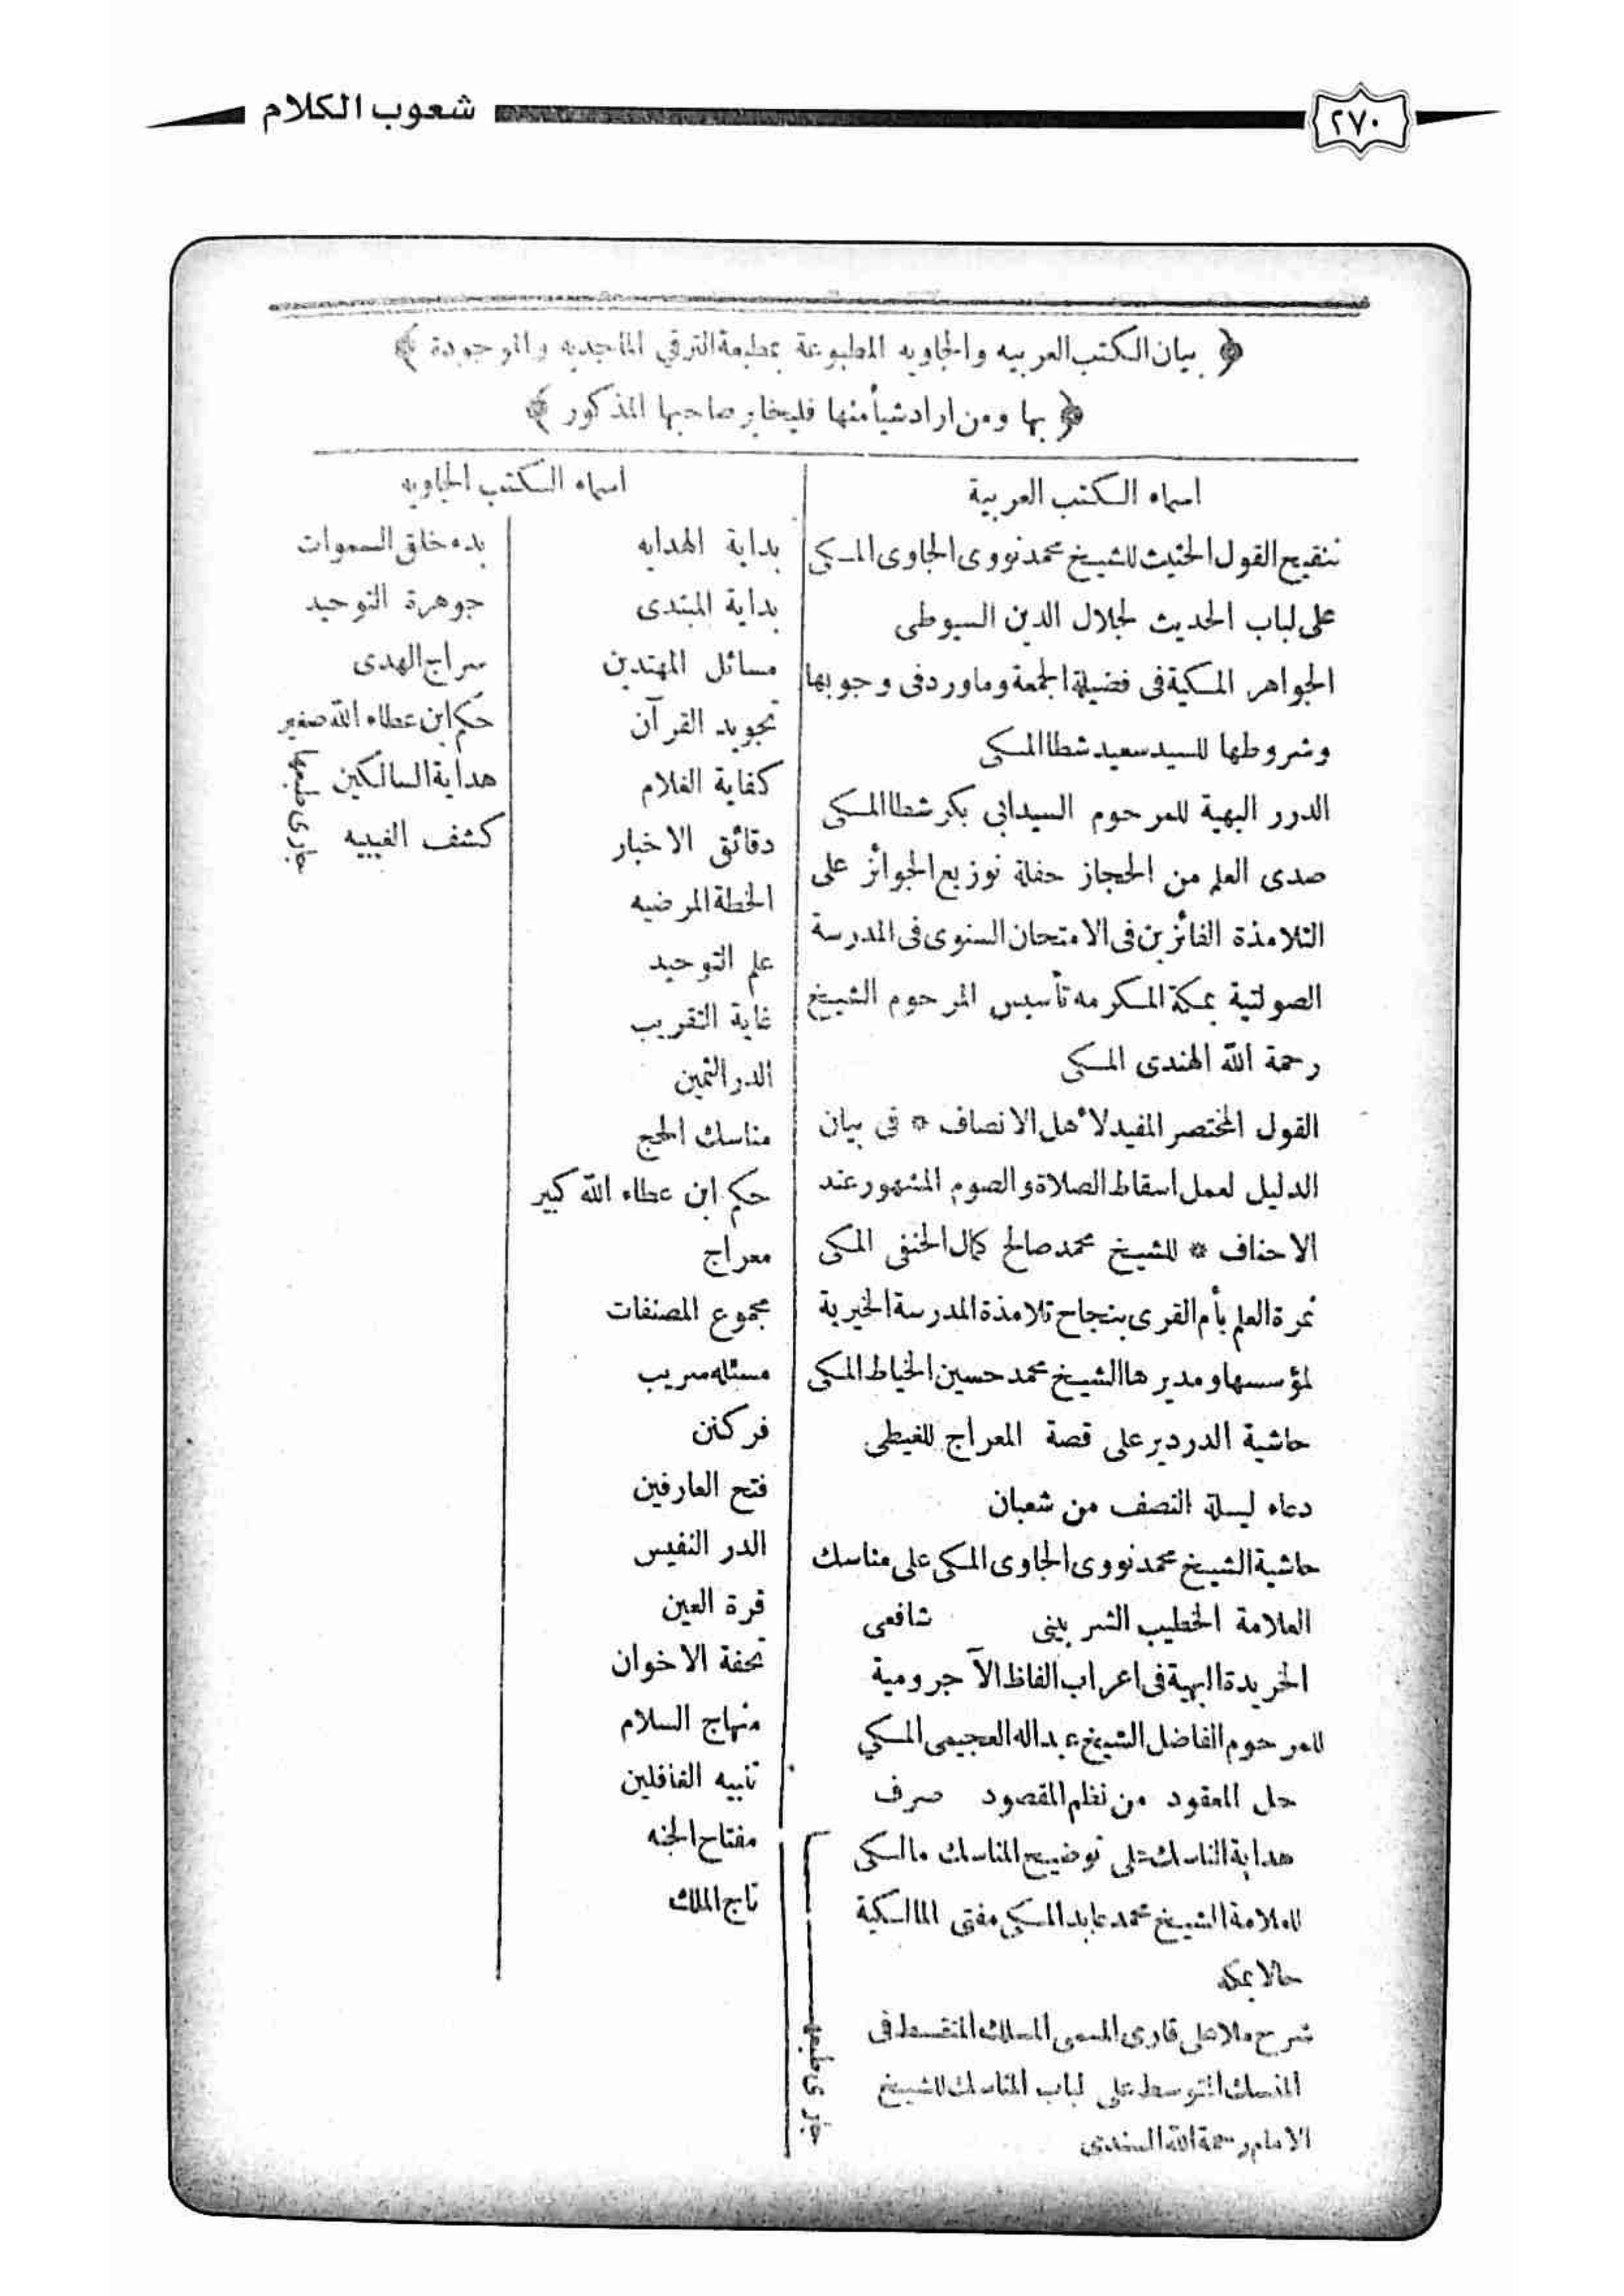 ٢٧٠
شعوب الكلام
﴿ بيان الكتب العربيه والجاويه المطبوعة بمطبعة الترقي الماجديه والموجودة ﴾
﴿ بها ومن اراد شيأ منها فليخابر صاحبها المذكور ﴾
اسماء الكتب العربية
تنقيح القول الحثيث للشيخ محمد نووى الجاوى المكى
على لباب الحديث لجلال الدين السيوطى
الجواهر المكية فى فضيلة الجمعة وما ورد فى وجوبها
وشروطها للسيد سعيد شطا المكى
الدرر البهية للمرحوم السيد ابى بكر شطا المكى
صدى العلم من الحجاز حفلة توزيع الجوائز على
التلامذة الفائزين فى الامتحان السنوى فى المدرسة
الصولتية بمكة المكرمه تأسيس المرحوم الشيخ
رحمة الله الهندى المكى
القول المختصر المفيد لأهل الانصاف * فى بيان
الدليل لعمل اسقاط الصلاة والصوم المشهور عند
الاحناف * للشيخ محمد صالح كمال الحنفى المكى
ثمرة العلم بأم القرى بنجاح تلامذة المدرسة الخيرية
لمؤسسها ومديرها الشيخ محمد حسين الخياط المكى
حاشية الدردير على قصة المعراج للغيطى
دعاء ليلة النصف من شعبان
حاشية الشيخ محمد نووى الجاوى المكى على مناسك
العلامة الخطيب الشربينى شافعى
الخريدة البهية فى اعراب الفاظ الآجرومية
للمرحوم الفاضل الشيخ عبد الله العجيمى المكي
حل المعقود من نظم المقصود صرف
هداية الناسك على توضيح المناسك مالكى
للعلامة الشيخ محمد عابد المكى مفتى المالكية
حالا بمكه
شرح ملا على قارى المسمى المسلك المتقسط فى
المنسك المتوسط على لباب المناسك للشيخ
الامام رحمة الله السندى
جارى طبعها
اسماء الكتب الجاويه
بداية الهدايه
بداية المبتدى
مسائل المهتدين
تجويد القرآن
كفاية الغلام
دقائق الاخبار
الخطة المرضيه
علم التوحيد
غاية التقريب
الدر الثمين
مناسك الحج
حكم ابن عطاء الله كبير
معراج
مجموع المصنفات
مسئله سريب
فركنن
فتح العارفين
الدر النفيس
قرة العين
تحفة الاخوان
منهاج السلام
تنبيه الغافلين
مفتاح الجنه
تاج الملك
بدء خلق السموات
جوهرة التوحيد
سراج الهدى
حكم ابن عطاء الله صغير
هداية السالكين
كشف الغيبيه
جارى طبعها